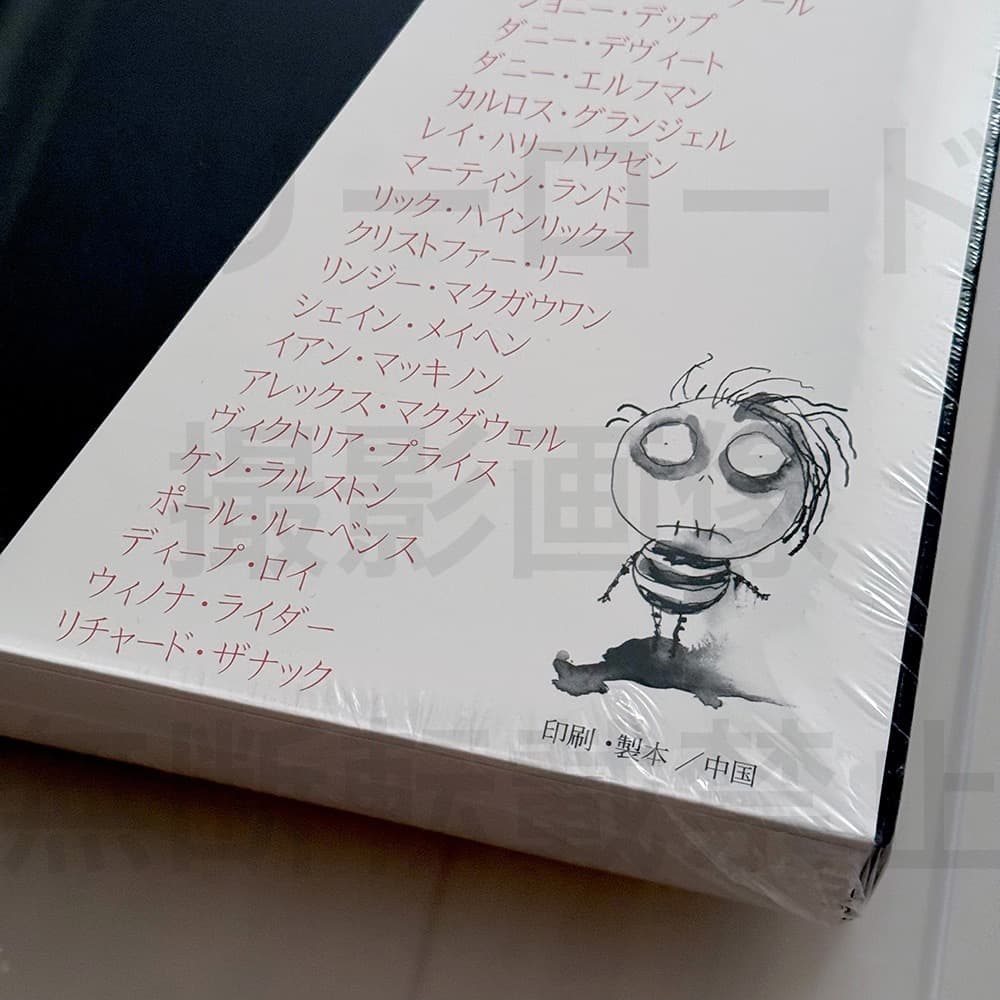 ジョニー・デップ
ダニー・デヴィート
ダニー・エルフマン
カルロス・グランジェル
レイ・ハリーハウゼン
マーティン・ランドー
リック・ハインリックス
クリストファー・リー
リンジー・マクガウワン
シェイン・メイヘン
イアン・マッキノン
アレックス・マクダウェル
ヴィクトリア・プライス
ケン・ラルストン
ポール・ルーベンス
ディープ・ロイ
ウィノナ・ライダー
リチャード・ザナック
印刷・製本／中国
リーロード
撮影画像
無断転載禁止